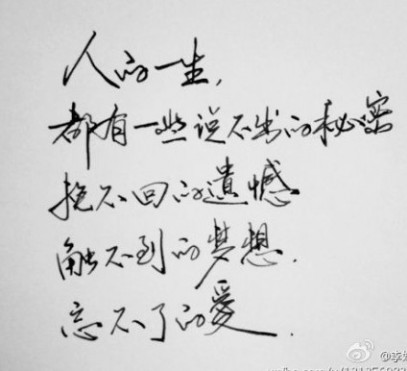 人的一生，
都有一些说不出的秘密
挽不回的遗憾
触不到的梦想.
忘不了的爱.